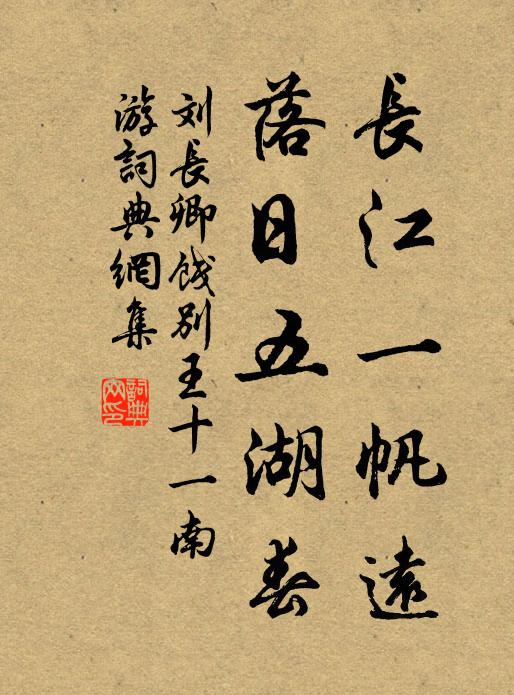 長江一帆遠
落日五湖春
刘長卿餞别王十一南
游詞典網集
詞典网印